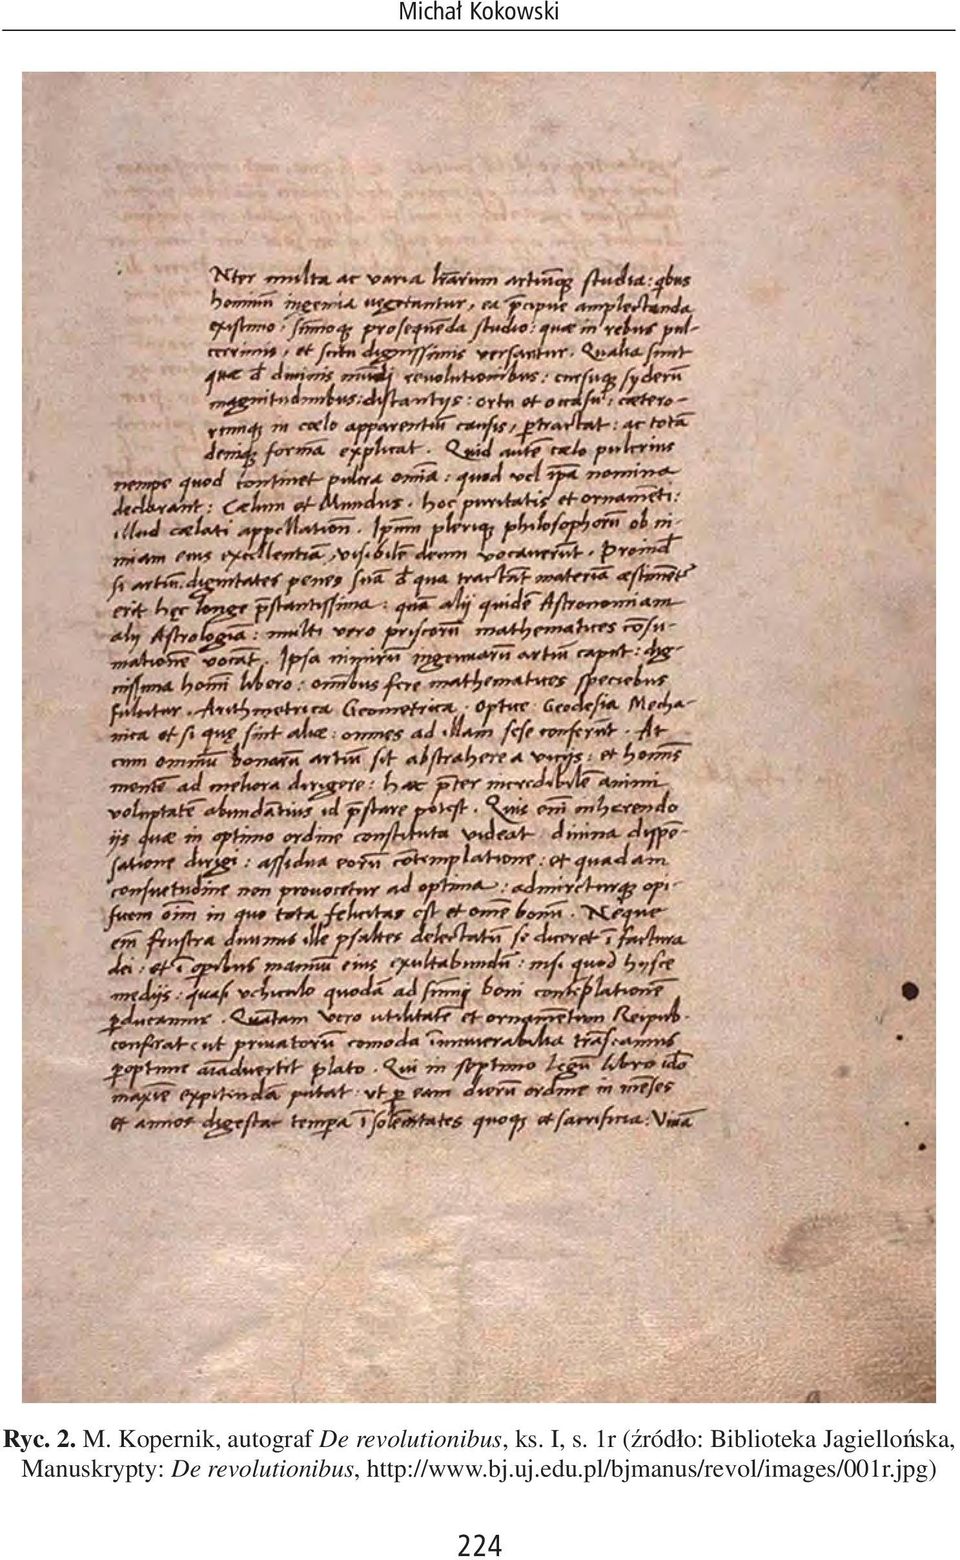 Michał Kokowski
Nter multa ac varia lr̄arum artiūqꝫ studia: qbus
hominū ingenia vegetantur, ea p̄cipue amplectanda
existimo, sūmoqꝫ prosequēda studio: quæ in rebus pul-
cerrimis, et scitu dignissimis versantur. Qualia sunt
quæ de diuinis mūdi reuolutionibus: cursuqꝫ syderū
magnitudinibus: distantijs: ortu et occasu: cætero-
rumqꝫ in cœlo apparentiū causis, ꝑtractat: ac totā
deniqꝫ formā explicat. Quid autē cælo pulcrius
nempe quod continet pulcra oīa: quod vel ip̄a nomina
declarant: Cælum et Mundus. hoc puritatis et ornamēti:
illud cælati appellatiōn. Ipsum pleriqꝫ philosophorū ob ni-
miam eius excellentiā, visibilē deum vocauerūt. Proinde
si artiū dignitates penes suā de qua tractāt materiā æstimēt
erit hęc longe p̄stantissima: quā alij quidē Astronomiam
alij Astrologiā: multi vero priscorū mathematices cōsu-
mationē vocāt. Ipsa nimirū ingenuarū artiū caput: dig-
nissima homī libero: omībus fere mathematices speciebus
fulcitur. Arithmetrica Geometrica. Optice Geodesia Mecha-
nica et si quę sint aliæ: omnes ad illam sese conferūt. At
cum omniū bonarū artiū sit abstrahere a vicijs: et homīs
mentē ad meliora dirigere: hæc p̄ter incredibilē animi
voluptatē abundātius id p̄stare potest. Quis em̄ inherendo
ijs quæ in optimo ordine constituta videat diuina dispē-
satione dirigi: assidua eorū cōtemplatione: et quadam
consuetudine non prouocetur ad optima: admireturqꝫ opi-
ficem oīm in quo tota felicitas est et omē bonū. Neque
em̄ frustra diuinus ille psaltes delectatū se diceret ī factura
dei: et ī operibus manuū eius exultabundū: nisi quod hysce
medijs: quasi vehiculo quodā ad sūmi boni contēplationē
ꝑducamur. Quātam vero utilitatē et ornamētum Reipub.
conferat (ut priuatorū comoda īnumerabilia trāseamus
ꝑoptime aīaduertit plato. Qui in septimo legū libro ideo
maxīē expetendā putat ut ꝑ eam dierū ordine in mēses
et annos digesta tempa ī solēnitates quoqꝫ et sacrificia: Viuā
Ryc. 2. M. Kopernik, autograf De revolutionibus, ks. I, s. 1r (źródło: Biblioteka Jagiellońska,
Manuskrypty: De revolutionibus, http://www.bj.uj.edu.pl/bjmanus/revol/images/001r.jpg)
224